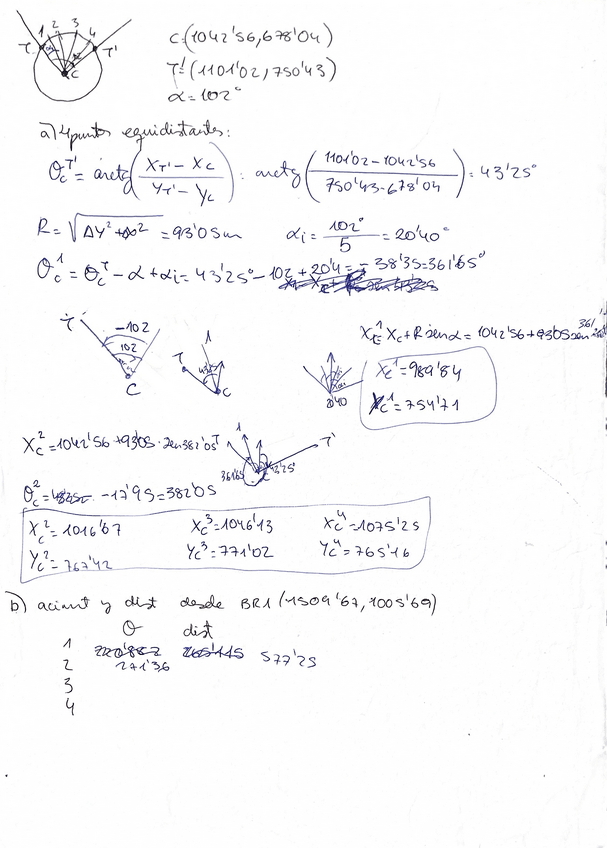 1 2 3 4
T T'
C
C: (1042'56, 678'04)
T' (1101'02, 750'43)
α = 102°
a) 4 puntos equidistantes:
θcT' = arctg (XT' - Xc / YT' - Yc) : arctg (1101'02 - 1042'56 / 750'43 - 678'04) = 43'25°
R = √ΔY² + Δx² = 93'05m αi = 102° / 5 = 20'40°
θc1 = θcT - α + αi = 43'25° - 102 + 20'4 = - 38'35 = 361'65°
T -102
102
C
1
T
C
Xc1 = Xc + R sen α = 1042'56 + 93'05 sen 361'65
Xc1 = 989'84
Yc1 = 754'71
Xc2 = 1042'56 + 93'05 · sen 382'05
T 1 T'
361'65 43'25°
θc2 = -17'95 = 382'05
Xc2 = 1016'67 Xc3 = 1046'13 Xc4 = 1075'25
Yc2 = 767'42 Yc3 = 771'02 Yc4 = 765'16
b) acimut y dist desde BR1 (1509'67, 1005'69)
θ dist
1 577'25
2 271'36
3
4